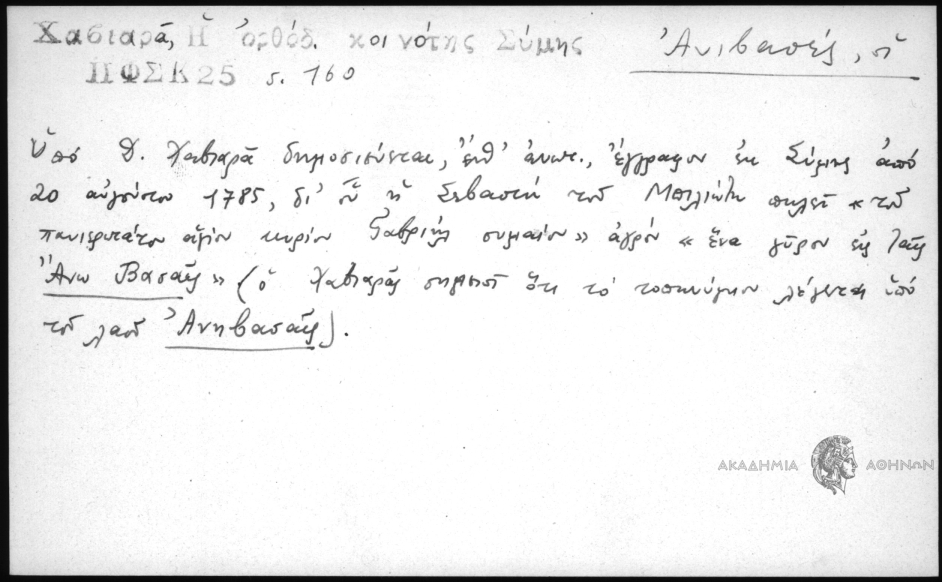 Χαβιαρᾶ, Ἡ ὀρθόδ. κοινότης Σύμης
ΠΦΣΚ25 σ. 160
Ἀνιβασές, οἱ
Ὑπό Δ. Χαβιαρᾶ δημοσιεύεται, ἔνθ' ἀνωτ., ἔγγραφον ἐκ Σύμης ἀπό
20 αὐγούστου 1785, δι' οὗ ἡ Σεβαστή τοῦ Μπιλιώτη πωλεῖ « τοῦ
πανιερωτάτου ἁγίου κυρίου Γαβριήλ συμαίου » ἀγρόν « ἕνα γῦρον εἰς ταῖς
Ἄνω Βασαῖς » (ὁ Χαβιαρᾶς σημειοῖ ὅτι τό τοπωνύμιον λέγεται ὑπό
τοῦ λαοῦ Ἀνηβασαῖς).
ΑΚΑΔΗΜΙΑ ΑΘΗΝΩΝ